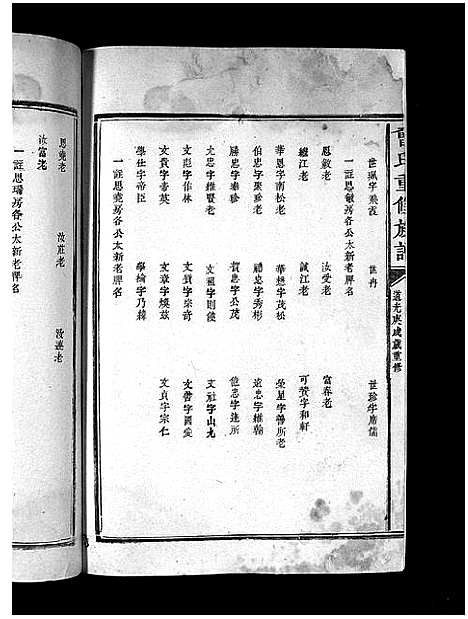 氏重修族譜
道光庚戌歲重修
世珮字飛霞 世冉 世珍字席儒
一諱思敏房各公太新老牌名
思毅老 汝愛老 富春老
繼江老 誠江老 可贊字和軒
華恩字南松老 華想字茂松 榮星字勝所老
伯忠字聚龄老 禮忠字秀彬 遠忠字維翰
勝忠字奉龄 賀忠字公茂 儉忠字進所
尤忠字維賢老 文福字則後 文社字山九
文彪字作林 文質字宗奇 文魯字國愛
文貴字帝英 文章字煥茲 文貞字宗仁
學仕字帝臣 學綸字乃絲
一諱思堯房各公太新老牌名
思堯老 汝莊老 汝連老
汝富老
一諱思瑞房各公太新老牌名